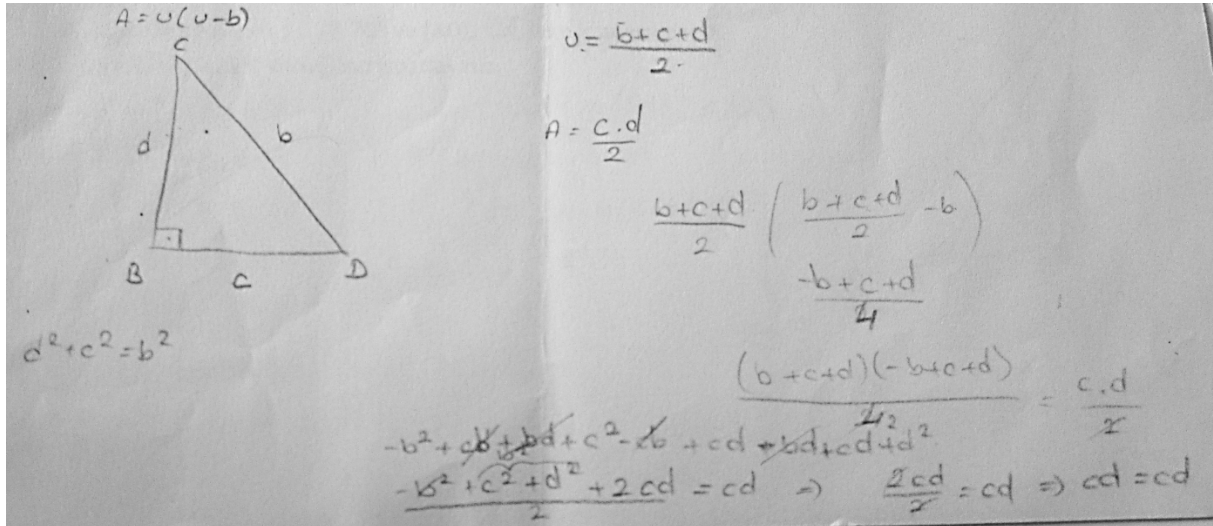 A = u(u-b)
C
d
b
B
c
D
d²+c²=b²
u = b+c+d / 2
A = c.d / 2
b+c+d / 2 ( b+c+d / 2 -b )
-b+c+d / 4
(b+c+d)(-b+c+d) / 4 2 = c.d / 2
-b²+cb+bd+c²-cb+cd-bd+cd+d²
-b²+c²+d²+2cd / 2 = cd ⇒ 2cd / 2 = cd ⇒ cd = cd